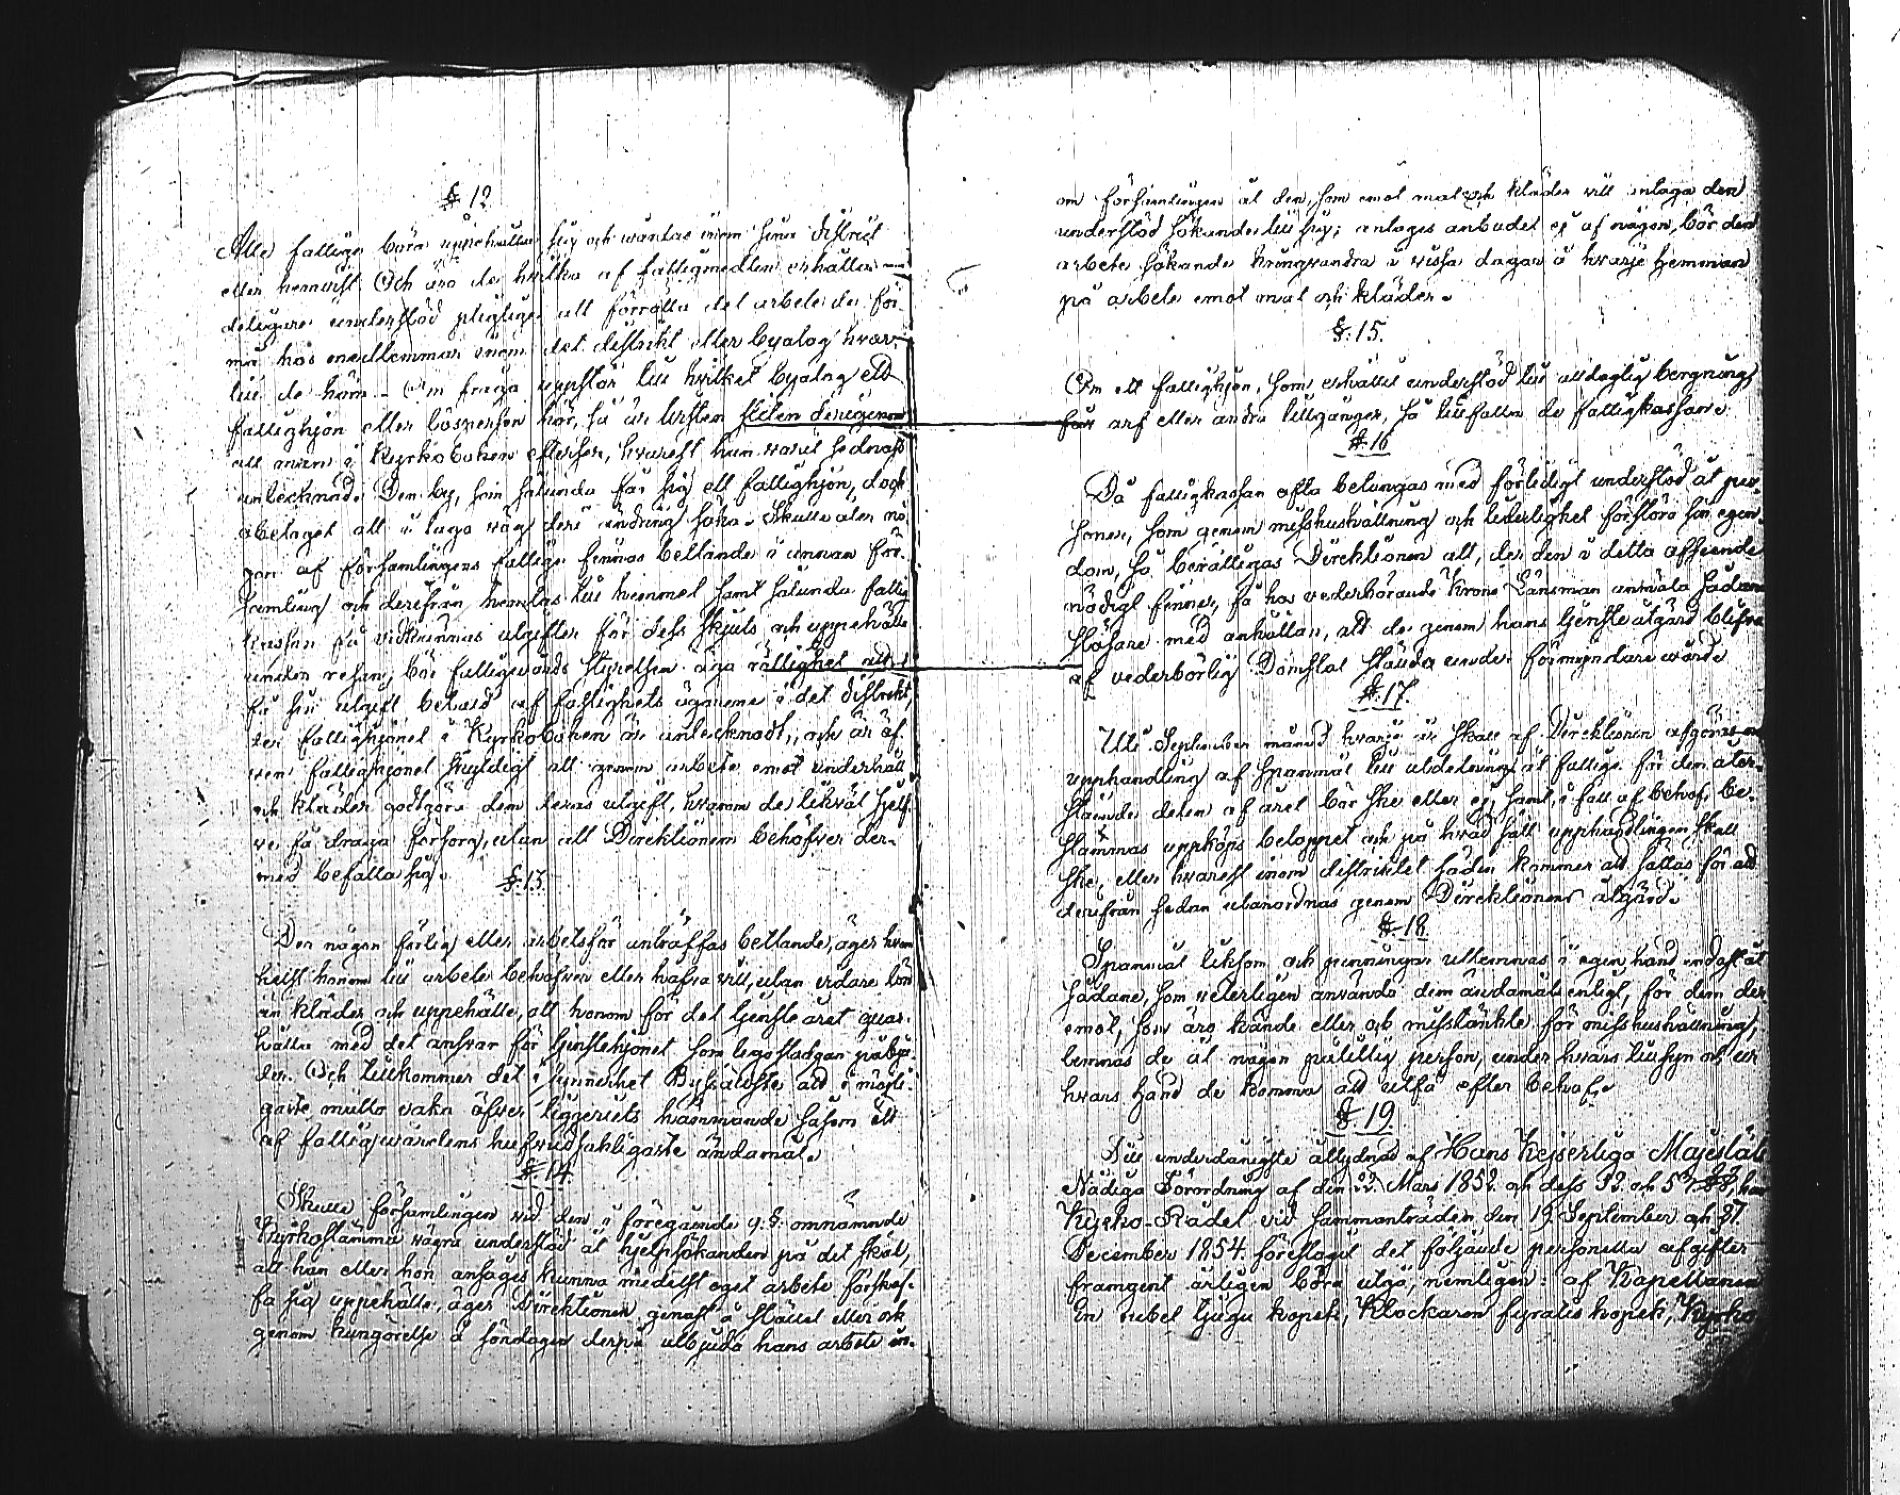 § 12
Alle fattige böra uppehålla sig och wårdas inom sina district
eller hemvist. Och äro de hvilka af fattigmedlen erhålla
deligare understöd pligtige att förrätta det arbete de för
må hos medlemmar inom det distrikt eller byalag hvar
till de höra. Om fråga uppstår till hvilket byalag ett
fattighjon eller lösperson hör, så är tvisten sliten derigenom
att man i Kyrkoboken efterser, hvarest han varit sednast
antecknad. Den by, som sålunda får sig ett fattighjon, doch
obetaget att i laga väg deri ändring söka. Skulle åter nå
gon af församlingens fattige finnas bettlande i annan för
samling och derifrån hemtas till hemmet samt sålunda fattig
kassan få vidkännas utgifter för dess skjuts och uppehälle
under resan; bör fattigvards styrelsen äga rättighet att
få sin utgift betald af fastighets ägarene i det distrikt,
der fattighjonet i Kyrkoboken är antecknadt, och är äf
ven fattighjonet skyldigt att genom arbete emot underhåll
och kläder godtgöra dem deras utgift, hvarom de likväl sjelf
ve få draga försorg, utan att Direktionen behöfver der-
med befatta sig.
§ 13.
Der någon förlig eller arbetsför anträffas bettlande, äger hvem
helst honom till arbete behöfver eller hafva vill, utan vidare lön
än kläder och uppehälle, att honom för det tjenste året quar-
hålla med det ansvar för tjenstehjonet som legostadgan påbju-
der. Och tillkommer det i synnerhet Byfiältste att i möjli-
gaste måtto vaka öfver tiggeriets hämmande såsom ett
af fattigwårdens hufvudsakligaste ändamål.
§ 14.
Skulle församlingen vid den i föregående 9. §. omnämnde
Kyrkostämma vägra understöd åt hjelpsökanden på det skäl,
att han eller hon anságes kunna medelst eget arbete förskaf-
fa sig uppehälle, äger Direktionen genast å stället eller ock
genom kungörelse å söndagen derpå utbjuda hans arbete in-
om församlingen åt den, som emot mat och kläder vill antaga den
understöd sökande till sig; antages anbudet ej af någon, bör den
arbete sökande kringvandra i vissa dagar å hvarje hemman
på arbete emot mat och kläder.
§. 15.
Om ett fattighjon, som erhållit understöd till alldaglig bergning
får arf eller andra tillgångar, så tillfalla de fattigkassan.
§. 16
Då fattigkassan ofta betungas med förledigt understöd åt per-
soner, som genom misshushållning och liderlighet förstöra sin egen-
dom, så berättigas Direktionen att, der den i detta afseende
nödigt finner, få hos vederbörande Krono Länsman anmäla sådan
slösare med anhållan, att de genom hans tjensteåtgärd blifva
af vederbörlig Domstol ställda under förmyndare wård.
§. 17.
Uti September månad hvarje år skall af Direktionen afgöras om
upphandling af spannmål till utdelning åt fattige för den åter-
stående delen af året bör ske eller ej, samt, i fall af behof, be-
stämmas uppköps beloppet och på hvad sätt upphandlingen skall
ske, eller hvarest inom distriktet säden kommer att fattas för att
derifrån sedan utanordnas genom Direktionens åtgärd.
§. 18.
Spanmål liksom och penningar utlemnas i egen hand endast åt
sådane, som veterligen använda dem ändamålsenligt, för dem der-
emot, som äro kände eller ock misstänkte för misshushållning,
lemnas de åt någon pålitlig person, under hvars tillsyn och ur
hvars hand de komma att utfå efter behof.
§ 19.
Till underdånigste åtlydnad af Hans Kejserliga Majestäts
Nådiga Förordning af den 22. Mars 1852 och dess 32. och 57 §§, har
Kyrko-Rådet vid sammanträden den 19 September och 27.
December 1854. föreslagit det följande personella afgifter
framgent årligen böra utgå, nemligen: af Kapellanen
En rubel tjugu kopek, Klockaren fyratio kopek, Kyrko